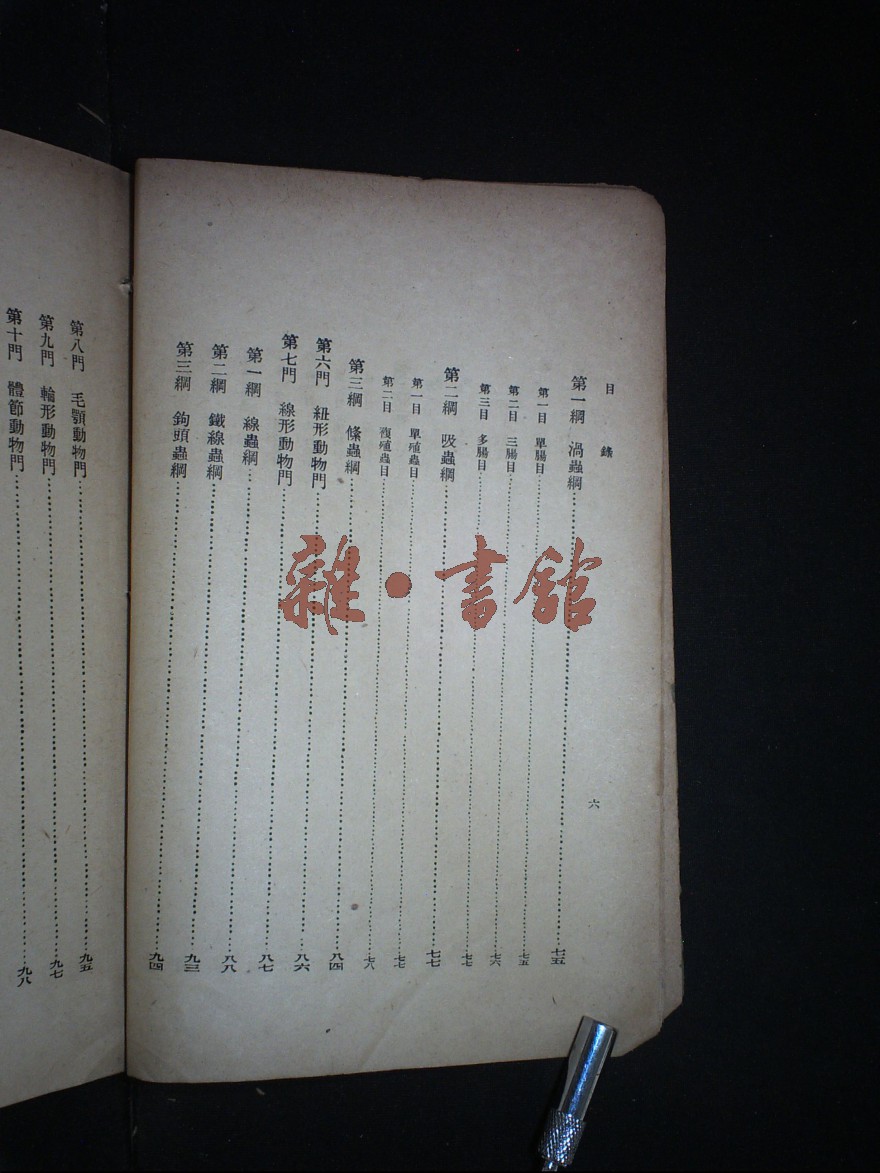 目錄
六
第一綱 渦蟲綱……七五
第一目 單腸目……七五
第二目 三腸目……七六
第三目 多腸目……七七
第二綱 吸蟲綱……七七
第一目 單殖蟲目……七七
第二目 複殖蟲目……七八
第三綱 條蟲綱……八四
第六門 紐形動物門……八六
第七門 線形動物門……八七
第一綱 線蟲綱……八八
第二綱 鐵線蟲綱……九三
第三綱 鉤頭蟲綱……九四
第八門 毛顎動物門……九五
第九門 輪形動物門……九七
第十門 體節動物門……九八
雜·書館